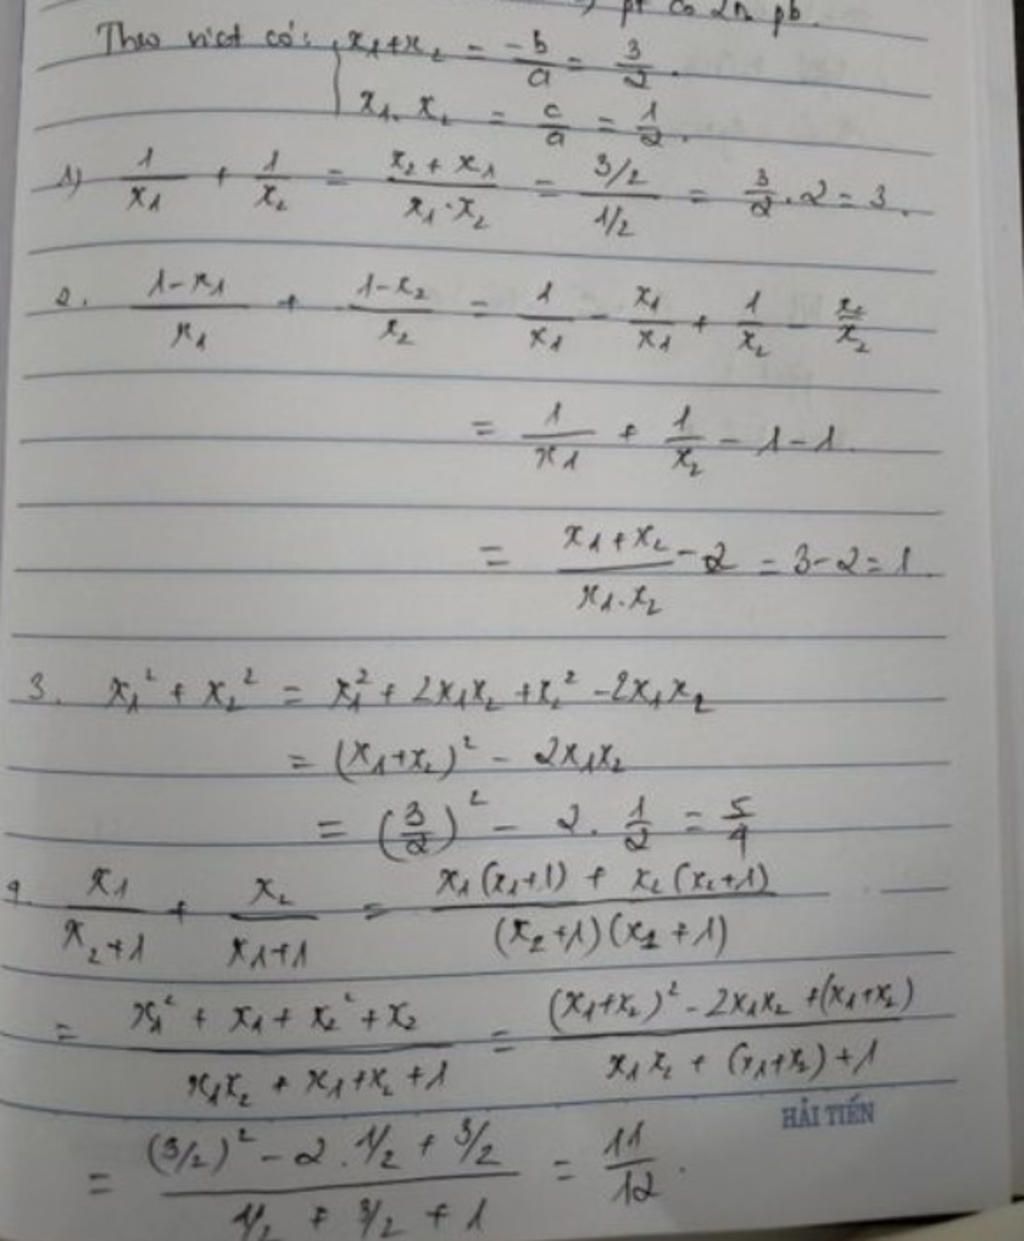 => pt có 2n pb.
Theo viet có: { x₁+x₂ = -b/a = 3/2.
x₁. x₂ = c/a = 1/2.
1) 1/x₁ + 1/x₂ = (x₂ + x₁)/(x₁.x₂) = (3/2)/(1/2) = 3/2 . 2 = 3.
2. (1-x₁)/x₁ + (1-x₂)/x₂ = 1/x₁ - x₁/x₁ + 1/x₂ - x₂/x₂
= 1/x₁ + 1/x₂ - 1 - 1.
= (x₁+x₂)/(x₁.x₂) - 2 = 3-2 = 1.
3. x₁² + x₂² = x₁² + 2x₁x₂ + x₂² - 2x₁x₂
= (x₁+x₂)² - 2x₁x₂
= (3/2)² - 2. 1/2 = 5/4
4. x₁/(x₂+1) + x₂/(x₁+1) = (x₁(x₁+1) + x₂(x₂+1))/((x₂+1)(x₁+1))
= (x₁² + x₁ + x₂² + x₂)/(x₁x₂ + x₁+x₂ +1) = ((x₁+x₂)² - 2x₁x₂ + (x₁+x₂))/(x₁x₂ + (x₁+x₂) +1)
HẢI TIẾN
= ((3/2)² - 2 . 1/2 + 3/2)/(1/2 + 3/2 + 1) = 11/12.